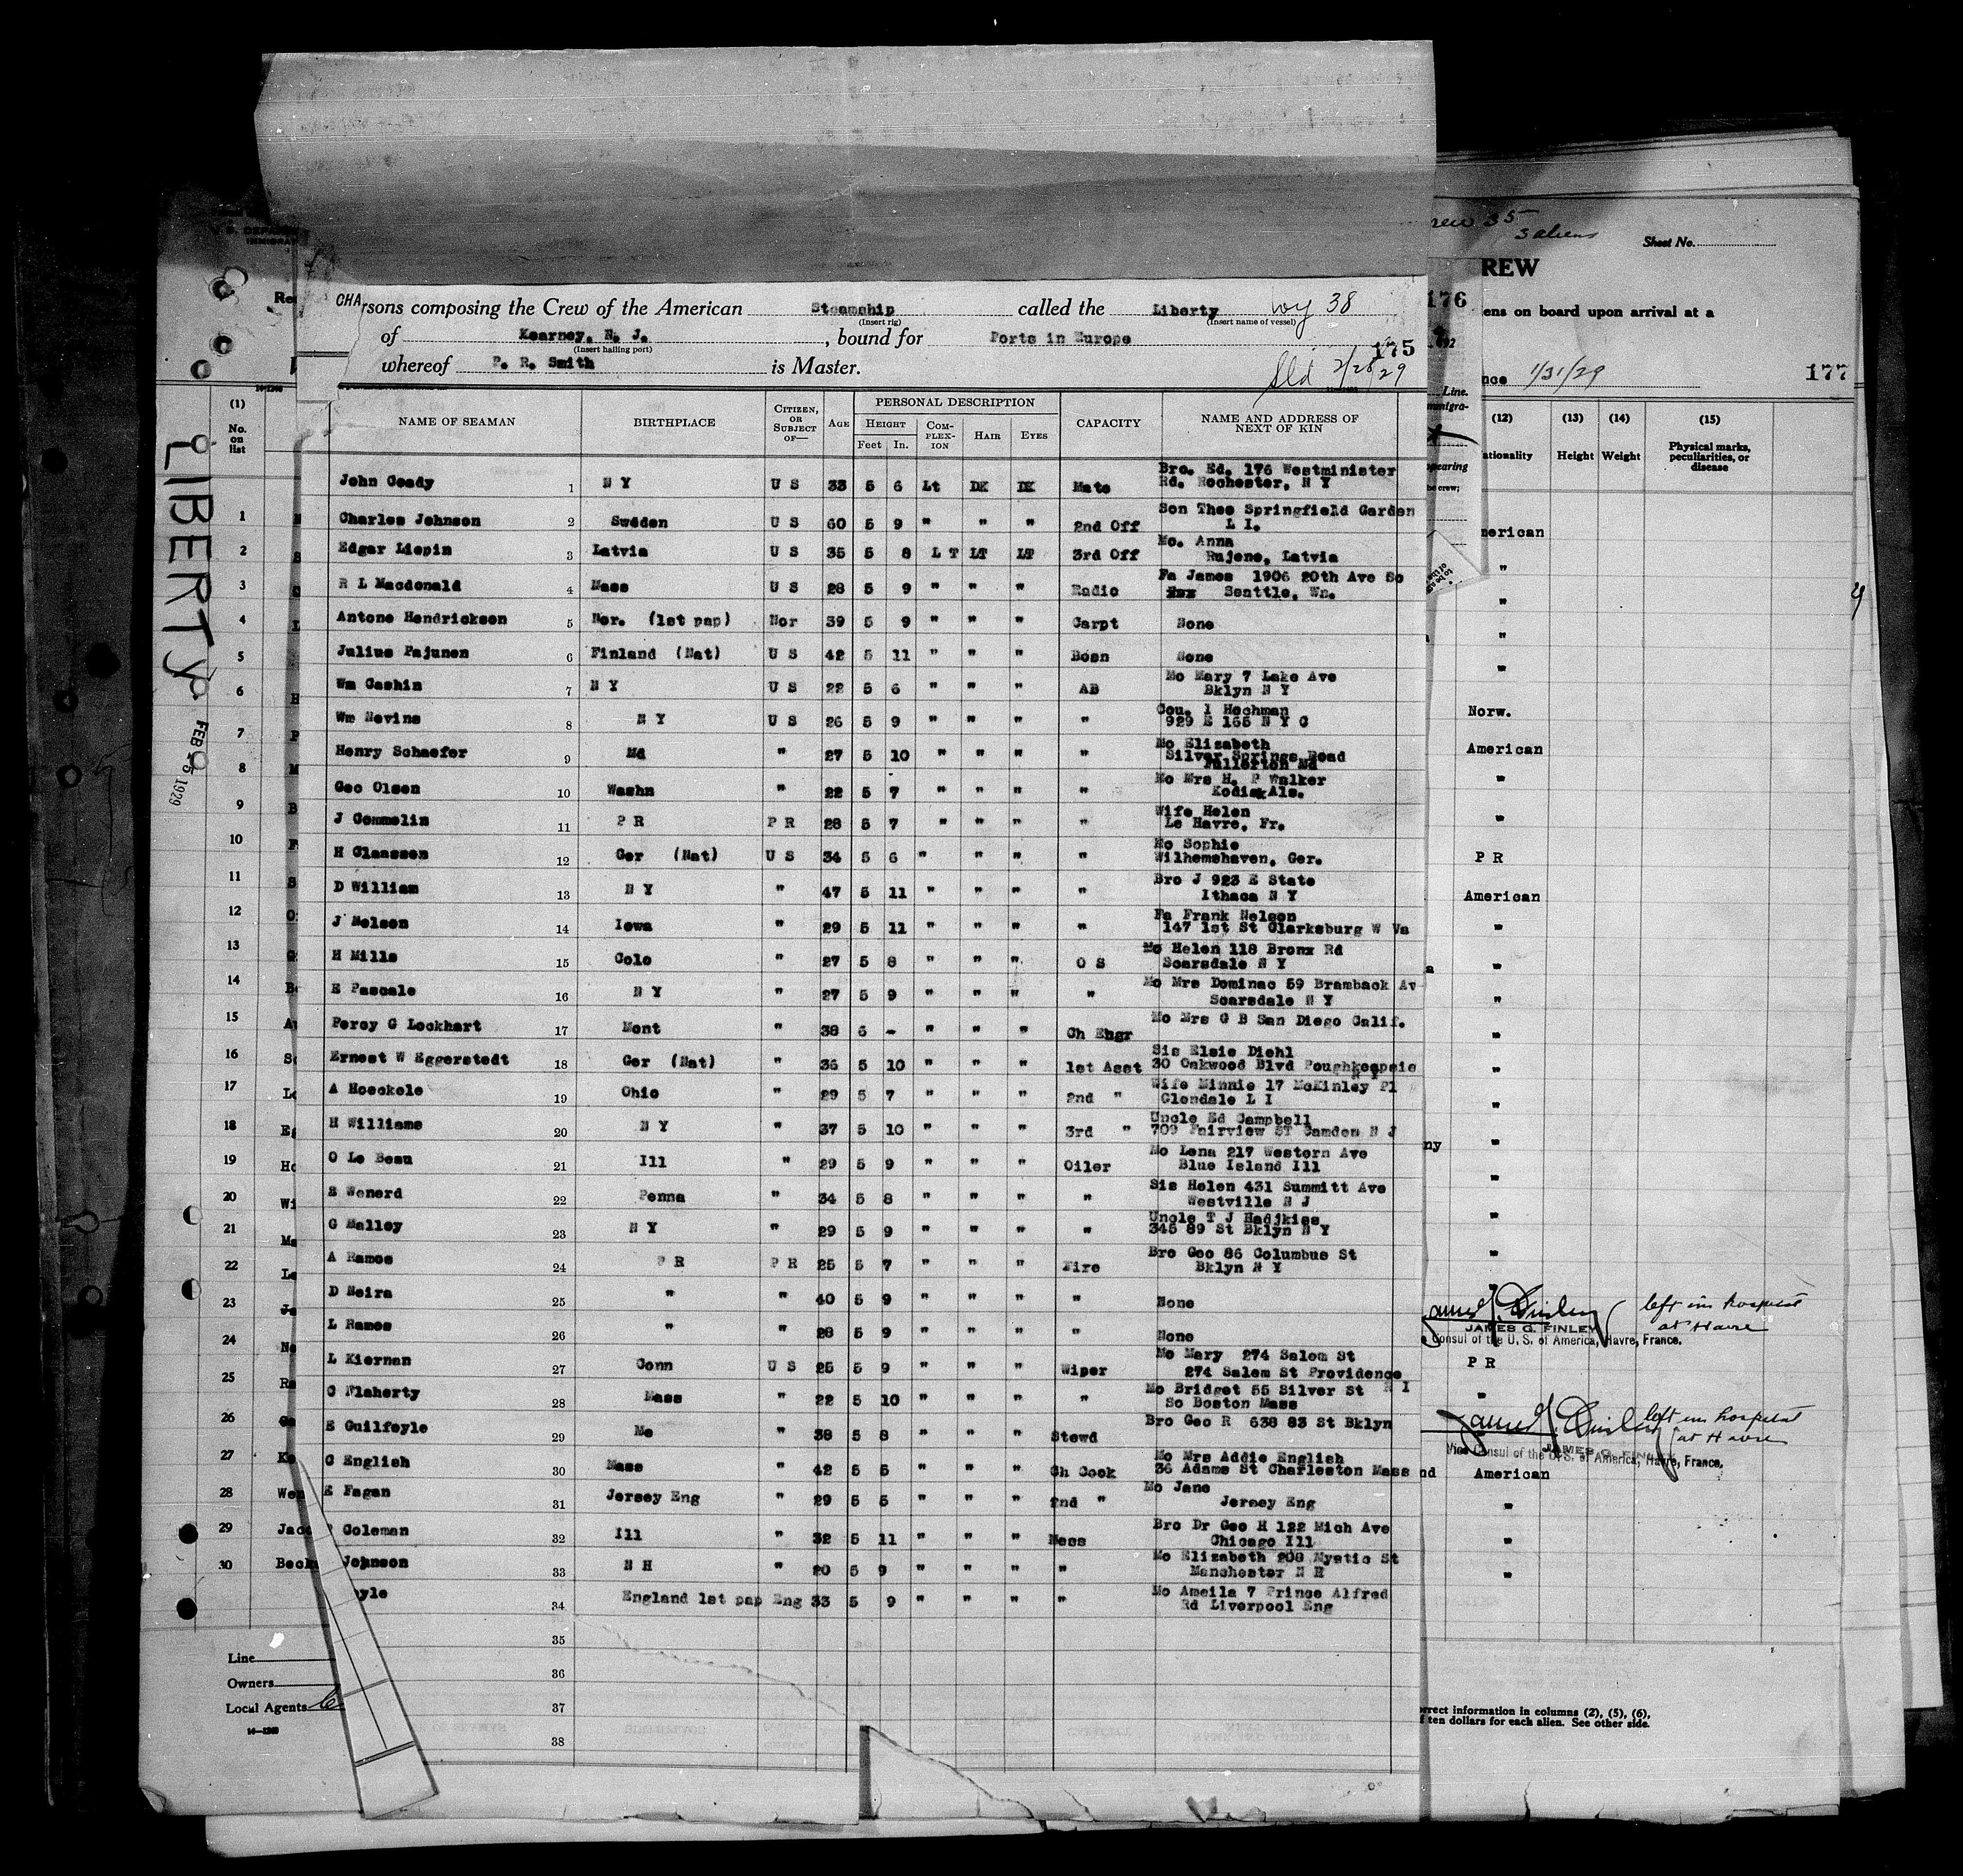 rew 35
3 aliens
Sheet No.
REW
176
ens on board upon arrival at a
CHA
rsons composing the Crew of the American Steamship called the Liberty
(Insert rig)
(Insert name of vessel)
38
of Kearney, N. J. , bound for Ports in Europe
(Insert hailing port)
175
whereof P. R. Smith is Master.
Sld 2/28/29
nce 1/31/29
177
Line.
LIBERTY
FEB 5 1929
(1)
No.
on
list
NAME OF SEAMAN BIRTHPLACE CITIZEN, OR SUBJECT OF— AGE PERSONAL DESCRIPTION CAPACITY NAME AND ADDRESS OF NEXT OF KIN
HEIGHT COM-PLEX-ION HAIR EYES
Feet In.
(12) (13) (14) (15)
ationality Height Weight Physical marks, peculiarities, or disease
John Coady 1 N Y U S 33 5 6 Lt DK DK Mate Bro. Ed. 176 Westminister
Rd. Rochester, N Y
Charles Johnson 2 Sweden U S 60 5 9 " " " 2nd Off Son Theo Springfield Garden
L I.
Edgar Liepin 3 Latvia U S 35 5 8 L T LT LT 3rd Off Mo. Anna
Rujene, Latvia
R L Macdonald 4 Mass U S 28 5 9 " " " Radio Fa James 1906 20th Ave So
Seattle, Wn.
Antone Hendrickson 5 Nor. (1st pap) Nor 39 5 9 " " " Carpt None
Julius Pajunen 6 Finland (Nat) U S 42 5 11 " " " Bosn None
Wm Cashin 7 N Y U S 22 5 6 " " " AB Mo Mary 7 Lake Ave
Bklyn N Y
Wm Nevins 8 N Y U S 26 5 9 " " " " Cou. I Hochman
929 E 165 N Y C
Henry Schaefer 9 Md " 27 5 10 " " " " Mo Elizabeth
Silver Springs Road
Fullerton Md
Geo Olsen 10 Washn " 22 5 7 " " " " Mo Mrs H. P Walker
Kodiak Als.
J Gommelin 11 P R P R 28 5 7 " " " " Wife Helen
Le Havre, Fr.
H Claassen 12 Ger (Nat) U S 34 5 6 " " " " Mo Sophie
Wilhemshaven, Ger.
D William 13 N Y " 47 5 11 " " " " Bro J 923 E State
Ithaca N Y
J Nelson 14 Iowa " 29 5 11 " " " " Fa Frank Nelson
147 1st St Clarksburg W Va
H Mills 15 Colo " 27 5 8 " " " O S Mo Helen 118 Bronx Rd
Scarsdale N Y
E Pascale 16 N Y " 27 5 9 " " " " Mo Mrs Dominac 59 Bramback Av
Scarsdale N Y
Percy G Lockhart 17 Mont " 38 6 - " " " Ch Engr Mo Mrs G B San Diego Calif.
Ernest W Eggerstedt 18 Ger (Nat) " 36 5 10 " " " 1st Asst Sis Elsie Diehl
30 Oakwood Blvd Poughkeepsie
A Hoeckele 19 Ohio " 29 5 7 " " " 2nd " Wife Minnie 17 McKinley Pl
Glendale L I
H Williams 20 N Y " 37 5 10 " " " 3rd " Uncle Ed Campbell
709 Fairview ST Camden N J
O Le Beau 21 Ill " 29 5 9 " " " Oiler Mo Lena 217 Western Ave
Blue Island Ill
E Wenerd 22 Penna " 34 5 8 " " " " Sis Helen 431 Summitt Ave
Westville N J
G Malley 23 N Y " 29 5 9 " " " " Uncle T J Hadjkiss
345 89 St Bklyn N Y
A Ramos 24 P R P R 25 5 7 " " " Fire Bro Geo 86 Columbus St
Bklyn N Y
D Neira 25 " " 40 5 9 " " " " None
L Ramos 26 " " 28 5 9 " " " " None
L Kiernan 27 Conn U S 25 5 9 " " " Wiper Mo Mary 274 Salem St
274 Salem St Providence R I
C Flaherty 28 Mass " 22 5 10 " " " " Mo Bridget 55 Silver St
So Boston Mass
E Guilfoyle 29 Me " 38 5 8 " " " Stewd Bro Geo R 638 83 St Bklyn
C English 30 Mass " 42 5 5 " " " Ch Cook Mo Mrs Addie English
36 Adams St Charleston Mass
E Fagan 31 Jersey Eng " 29 5 5 " " " 2nd " Mo Jane
Jersey Eng
Coleman 32 Ill " 32 5 11 " " " Mess Bro Dr Geo H 122 Mich Ave
Chicago Ill
Johnson 33 N H " 20 5 9 " " " " Mo Elizabeth 208 Mystic St
Manchester N H
oyle 34 England 1st pap Eng 33 5 9 " " " " Mo Ameila 7 Prince Alfred
Rd Liverpool Eng
35
36
37
38
1
2
3
4
5
6
7
8
9
10
11
12
13
14
15
16
17
18
19
20
21
22
23
24
25
26
27
28
29
30
Line
Owners
Local Agents
merican
"
Norw.
American
"
P R
American
"
left in hospital
at Havre
JAMES G. FINLEY
Consul of the U. S. of America, Havre, France.
P R
"
left in hospital
at Havre
JAMES G. FINLEY
Vice Consul of the U. S. of America, Havre, France.
nd American
"
rrect information in columns (2), (5), (6),
f ten dollars for each alien. See other side.